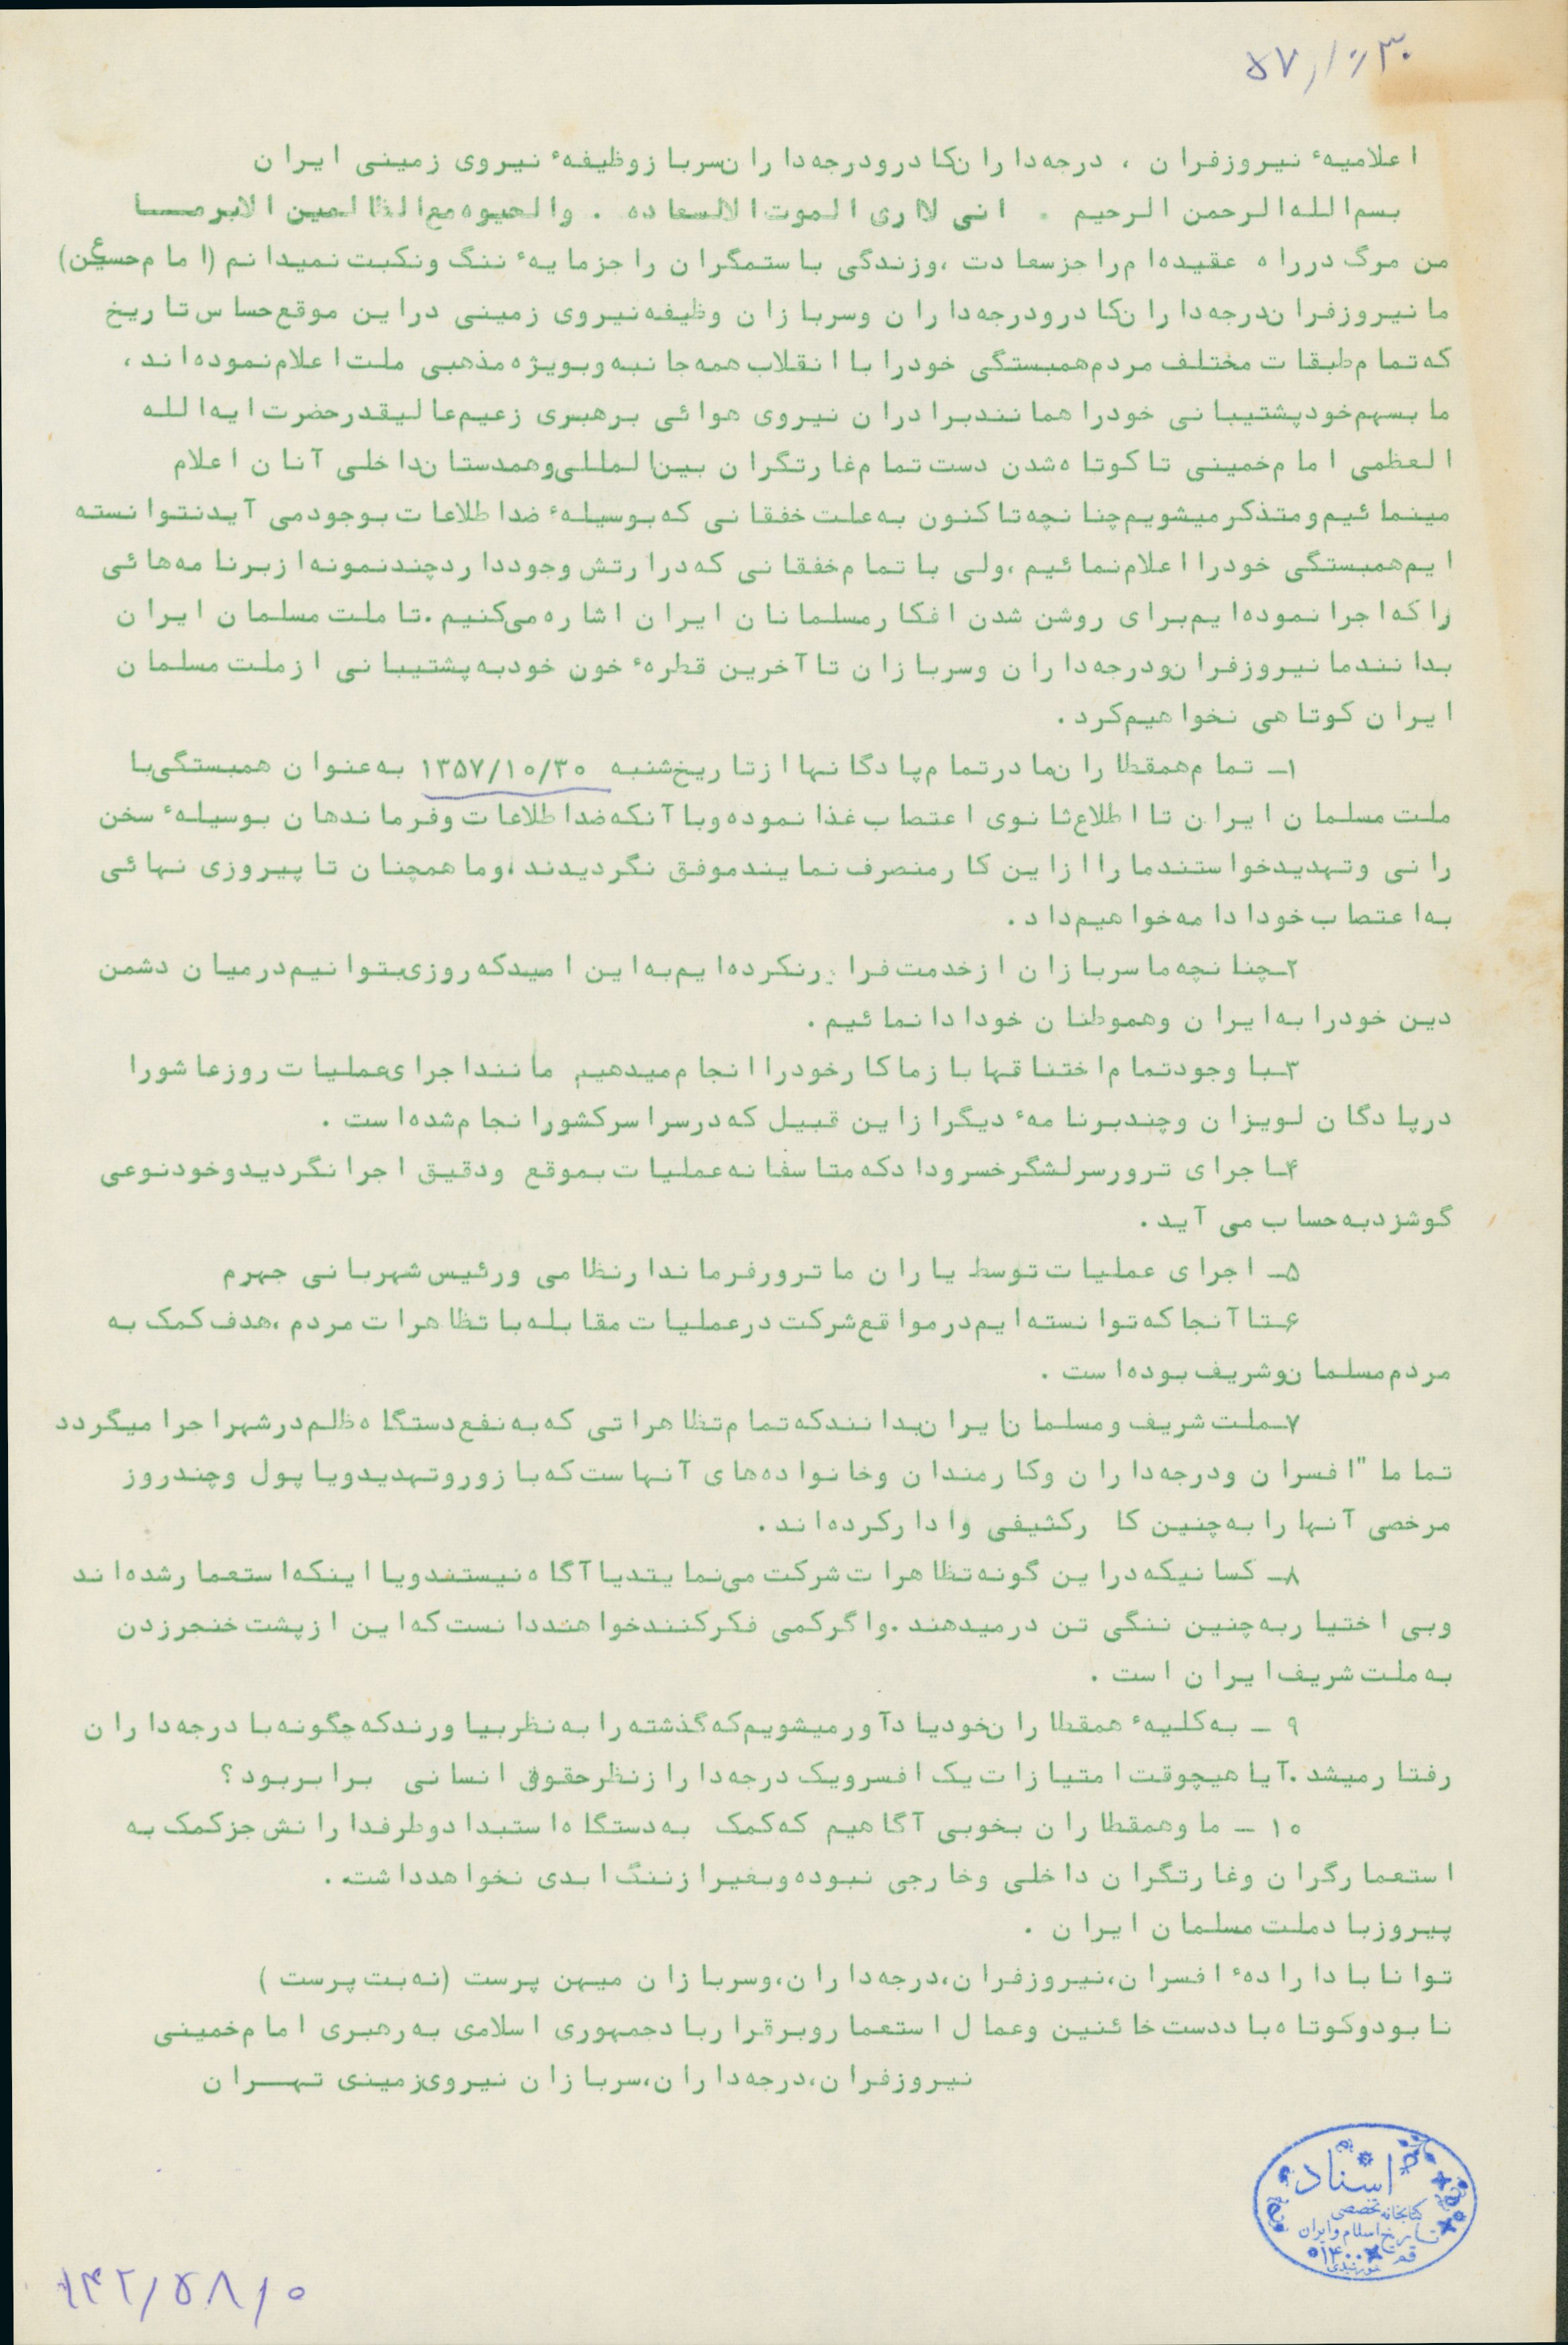 ۵۷/۱۰/۳۰
اعلامیهٔ نیروزفران ، درجه‌داران‌کادرودرجه‌داران‌سربازوظیفهٔ نیروی زمینی ایران
بسم‌الله‌الرحمن الرحیم . انی لااری الموت‌الالسعاده . والحیوه‌مع‌الظالمین الابرمــا
من مرگ درراه عقیده‌ام‌را جزسعادت ،وزندگی باستمگران را جزمایهٔ ننگ ونکبت نمیدانم (امام‌حسین ع)
مانیروزفران‌درجه‌داران‌کادرودرجه‌داران وسربازان وظیفه‌نیروی زمینی دراین موقع‌حساس‌تاریخ
که‌تمام‌طبقات مختلف مردم‌همبستگی خودرا باانقلاب همه‌جانبه‌وبویژه‌مذهبی ملت‌اعلام‌نموده‌اند ،
ما بسهم‌خودپشتیبانی خودرا همانندبرادران نیروی هوائی برهبری زعیم‌عالیقدرحضرت‌ایه‌الله
العظمی امام‌خمینی تاکوتاه‌شدن دست تمام‌غارتگران بین‌المللی‌وهمدستان‌داخلی آنان اعلام
مینمائیم‌ومتذکرمیشویم‌چنانچه‌تاکنون به‌علت خفقانی که‌بوسیلهٔ ضداطلاعات بوجودمی آیدنتوانسته
ایم‌همبستگی خودرااعلام‌نمائیم ،ولی باتمام‌خفقانی که‌درارتش وجودداردچندنمونه‌ازبرنامه‌هائی
راکه‌اجرانموده‌ایم‌برای روشن شدن افکارمسلمانان ایران اشاره‌می‌کنیم .تا ملت مسلمان ایران
بدانندمانیروزفران‌ودرجه‌داران وسربازان تاآخرین قطرهٔ خون خودبه‌پشتیبانی ازملت مسلمان
ایران کوتاهی نخواهیم‌کرد .
۱ـ تمام‌همقطاران‌مادرتمام‌پادگانهاازتاریخ‌شنبه ۱۳۵۷/۱۰/۳۰ به‌عنوان همبستگی‌با
ملت مسلمان ایران تااطلاع‌ثانوی اعتصاب غذانموده‌وباآنکه‌ضداطلاعات وفرماندهان بوسیلهٔ سخن
رانی وتهدیدخواستندماراازاین کارمنصرف نمایندموفق نگردیدند ،وماهمچنان تاپیروزی نهائی
به‌اعتصاب خودادامه‌خواهیم‌داد .
۲ـچنانچه‌ماسربازان ازخدمت فرا رنکرده‌ایم‌به‌این امیدکه‌روزی‌بتوانیم‌درمیان دشمن
دین خودرابه‌ایران وهموطنان خودادانمائیم .
۳ـبا وجودتمام‌اختناقها بازماکارخودراانجام‌میدهیم ماننداجرای‌عملیات روزعاشورا
درپادگان لویزان وچندبرنامهٔ دیگرازاین قبیل که‌درسراسرکشورانجام‌شده‌است .
۴ـاجرای ترورسرلشگرخسروداد که متاسفانه‌عملیات بموقع ودقیق اجرانگردیدوخودنوعی
گوشزدبه‌حساب می آید .
۵ـ اجرای عملیات توسط یاران ماترورفرماندارنظامی ورئیس‌شهربانی جهرم
۶ـتاآنجاکه‌توانسته‌ایم‌درمواقع‌شرکت درعملیات مقابله‌باتظاهرات مردم ،هدف کمک به
مردم‌مسلمان‌وشریف بوده‌است .
۷ـملت شریف ومسلمان‌ایران‌بدانندکه‌تمام‌تظاهراتی که‌به‌نفع‌دستگاه‌ظلم‌درشهراجرا میگردد
تماما "افسران ودرجه‌داران وکارمندان وخانواده‌های آنهاست که‌بازوروتهدیدویاپول وچندروز
مرخصی آنها رابه‌چنین کا رکثیفی وادارکرده‌اند .
۸ـ کسانیکه‌دراین گونه‌تظاهرات شرکت می‌نمایتدیاآگاه‌نیستندویااینکه‌استعمارشده‌اند
وبی اختیاربه‌چنین ننگی تن درمیدهند .واگرکمی فکرکنندخواهنددانست که‌این ازپشت خنجرزدن
به‌ملت شریف‌ایران است .
۹ ـ به‌کلیهٔ همقطاران‌خودیادآورمیشویم‌که‌گذشته‌رابه‌نظربیاورندکه‌چگونه‌با درجه‌داران
رفتارمیشد .آیاهیچوقت امتیازات یک افسرویک درجه‌دارازنظرحقوق انسانی برابربود ؟
۱۰ ـ ماوهمقطاران بخوبی آگاهیم که‌کمک به‌دستگاه‌استبدادوطرفدارانش جزکمک به
استعمارگران وغارتگران داخلی وخارجی نبوده‌وبغیرازننگ ابدی نخواهدداشت .
پیروزبادملت مسلمان ایران .
توانابادارادهٔ افسران،نیروزفران،درجه‌داران،وسربازان میهن پرست (نه‌بت پرست )
نابودوکوتاه‌باددست خائنین وعمال استعماروبرقراربادجمهوری اسلامی به‌رهبری امام‌خمینی
نیروزفران،درجه‌داران،سربازان نیروی‌زمینی تهــران
اسناد
کتابخانه تخصصی
تاریخ اسلام و ایران
قم
۱۴۲/۵۸/۰